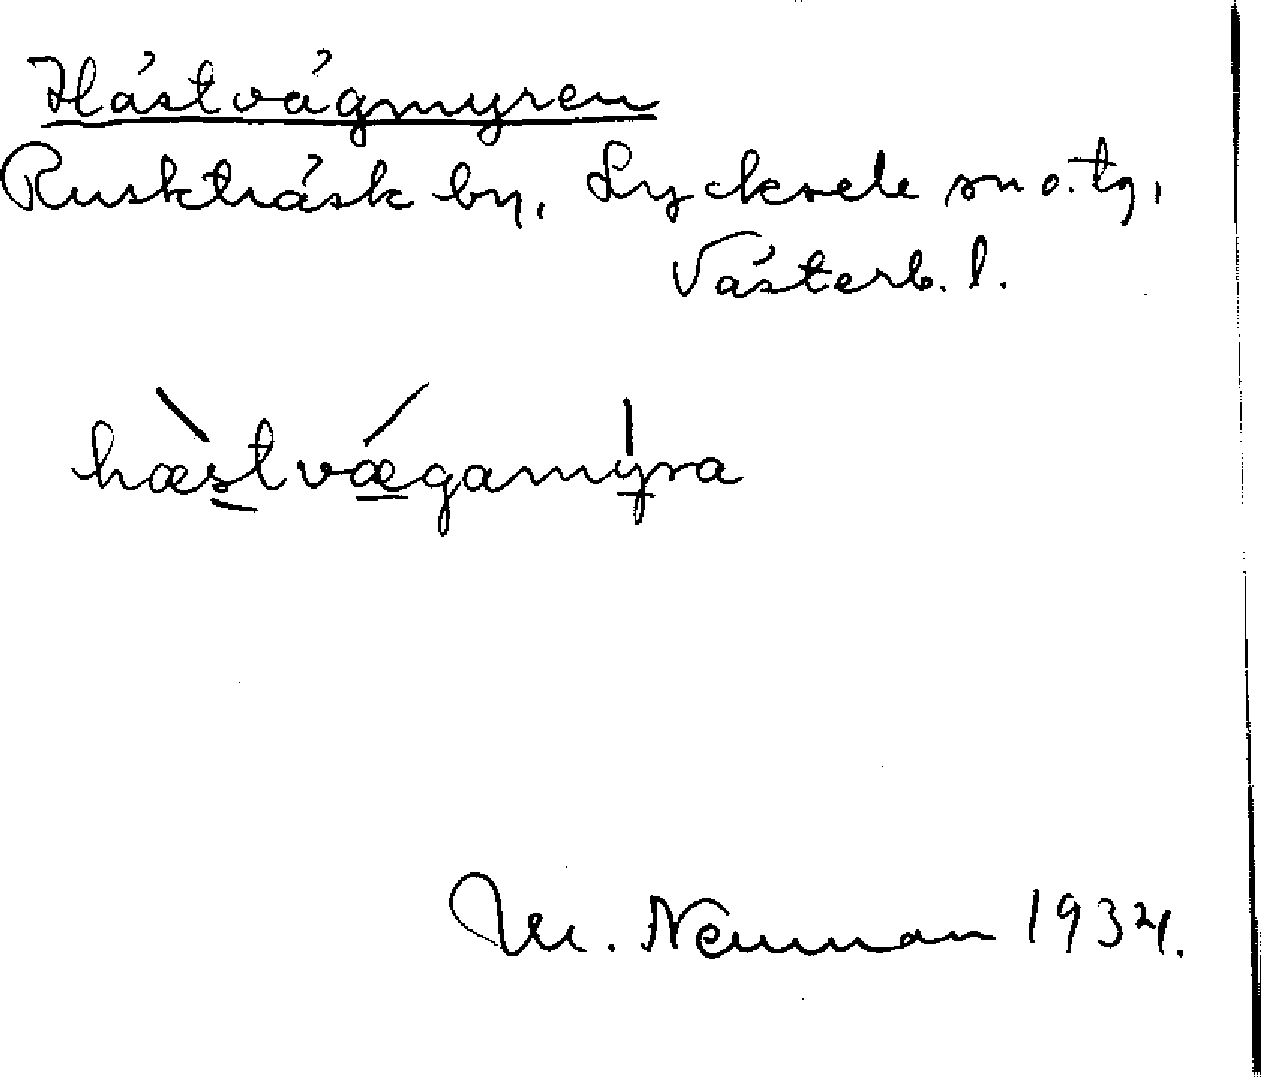 Hästvägmyren
Ruskträsk by, Lycksele sn o. tg,
Västerb. l.
hæstvægamyra
M. Neuman 1934.